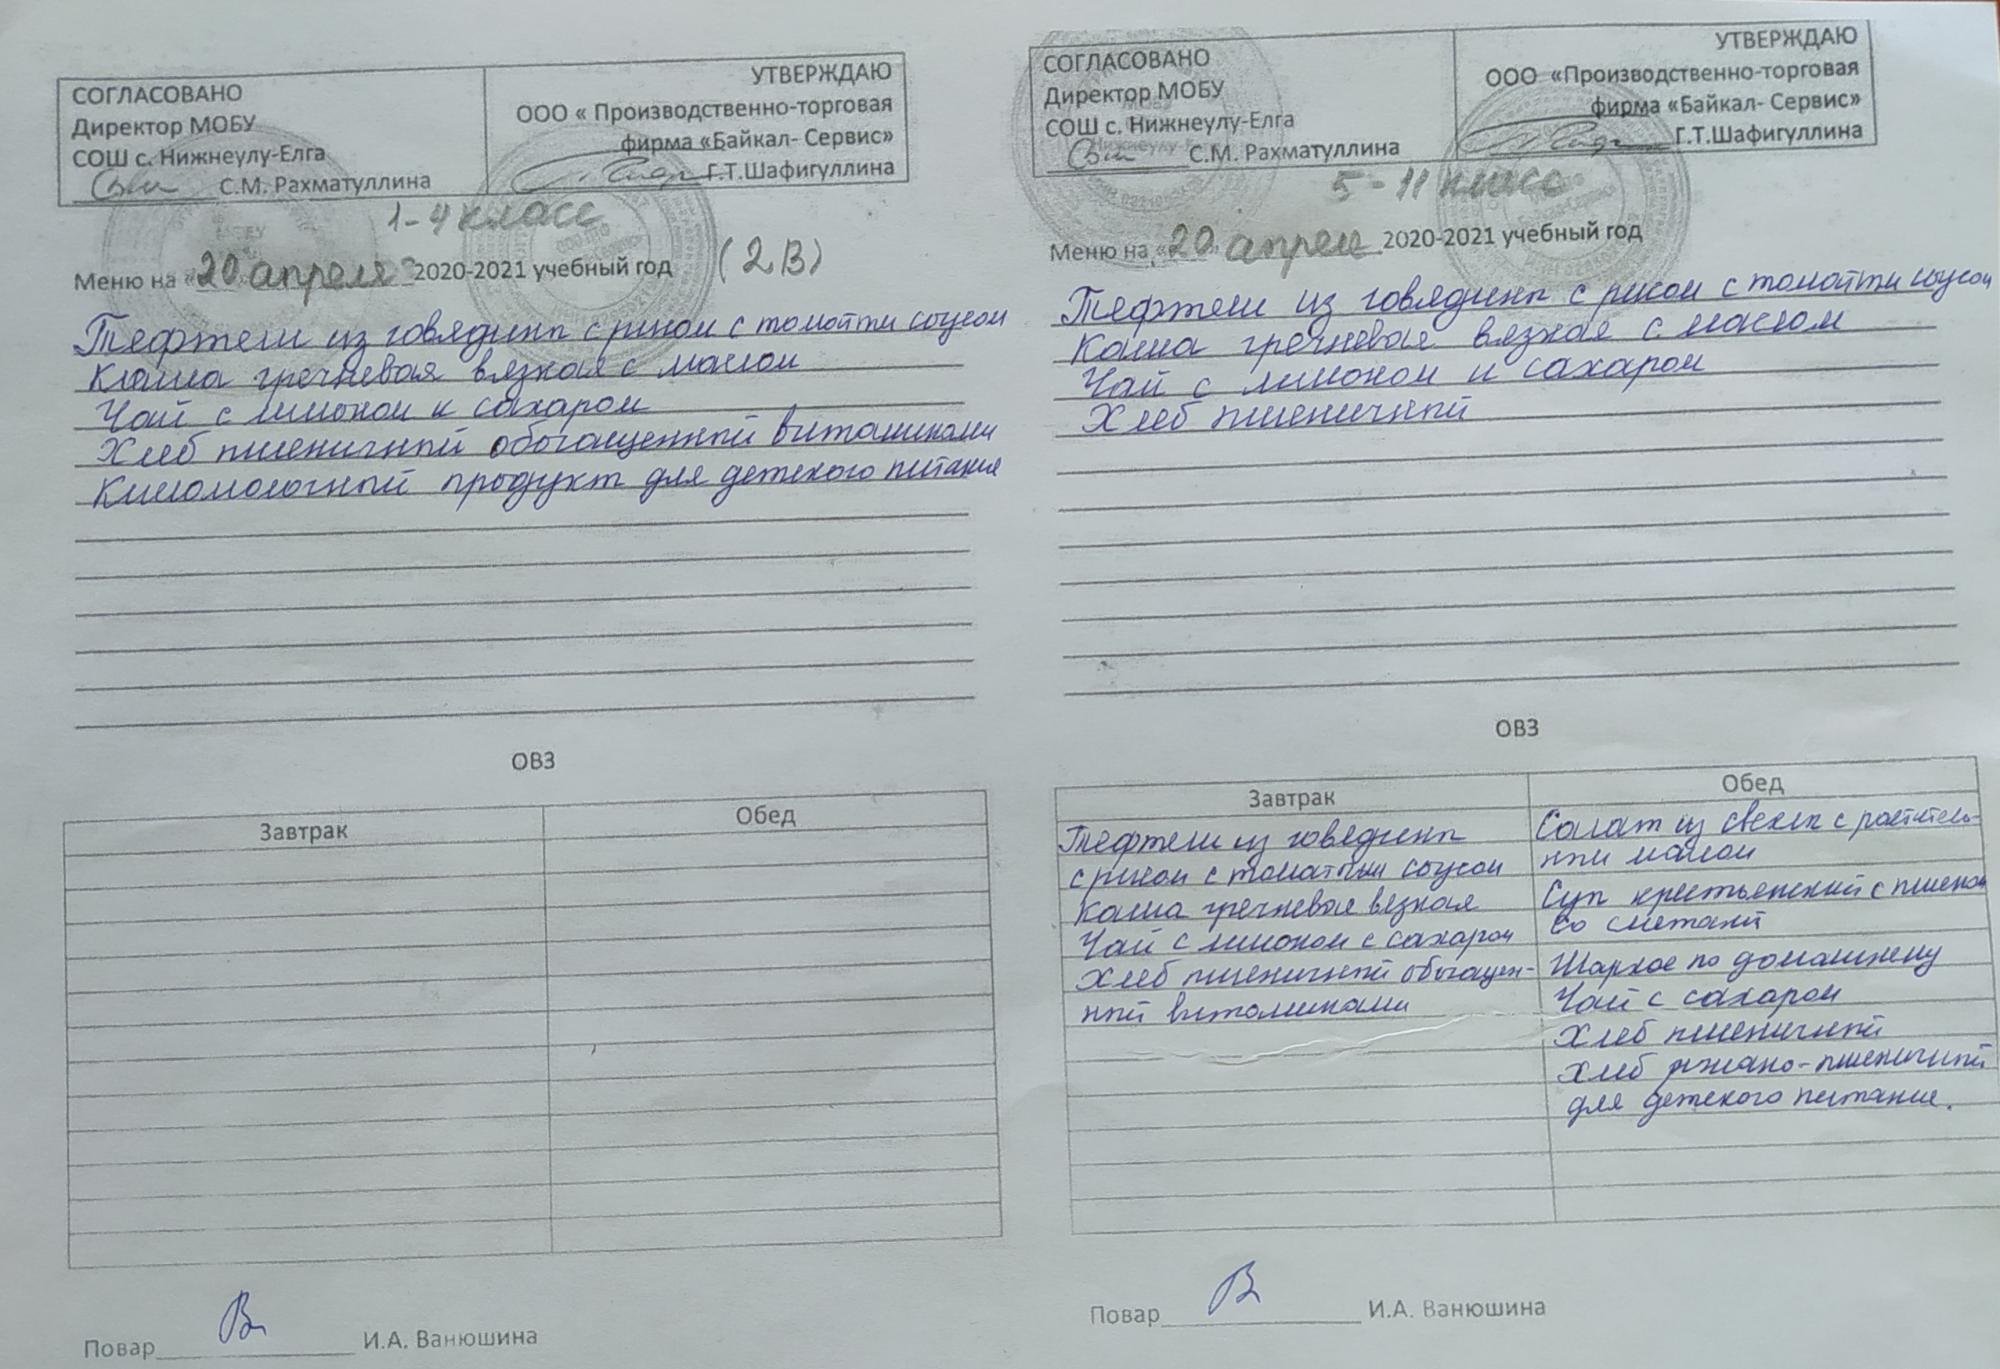 СОГЛАСОВАНО
Директор МОБУ
СОШ с. Нижнеулу-Елга
С.М. Рахматуллина
УТВЕРЖДАЮ
ООО « Производственно-торговая
фирма «Байкал- Сервис»
Г.Т.Шафигуллина
1-4 класс
Меню на «20» апреля 2020-2021 учебный год (2В)
Тефтели из говядины с рисом с томатны соусом
Каша гречневая вязкая с маслом
Чай с лимоном и сахаром
Хлеб пшеничный обогащенный витаминами
Кисломолочный продукт для детского питания
ОВЗ
Завтрак Обед
Повар И.А. Ванюшина
СОГЛАСОВАНО
Директор МОБУ
СОШ с. Нижнеулу-Елга
С.М. Рахматуллина
УТВЕРЖДАЮ
ООО «Производственно-торговая
фирма «Байкал- Сервис»
Г.Т.Шафигуллина
5-11 класс
Меню на «20» апреля 2020-2021 учебный год
Тефтели из говядины с рисом с томатны соусом
Каша гречневая вязкая с маслом
Чай с лимоном и сахаром
Хлеб пшеничный
ОВЗ
Завтрак
Тефтели из говядины
с рисом с томатным соусом
Каша гречневая вязкая
Чай с лимоном с сахаром
Хлеб пшеничный обогащен-
ный витаминами
Обед
Салат из свеклы с раститель-
ным маслом
Суп крестьянский с пшеном
со сметаной
Жаркое по домашнему
Чай с сахаром
Хлеб пшеничный
Хлеб ржано-пшеничный
для детского питания.
Повар И.А. Ванюшина